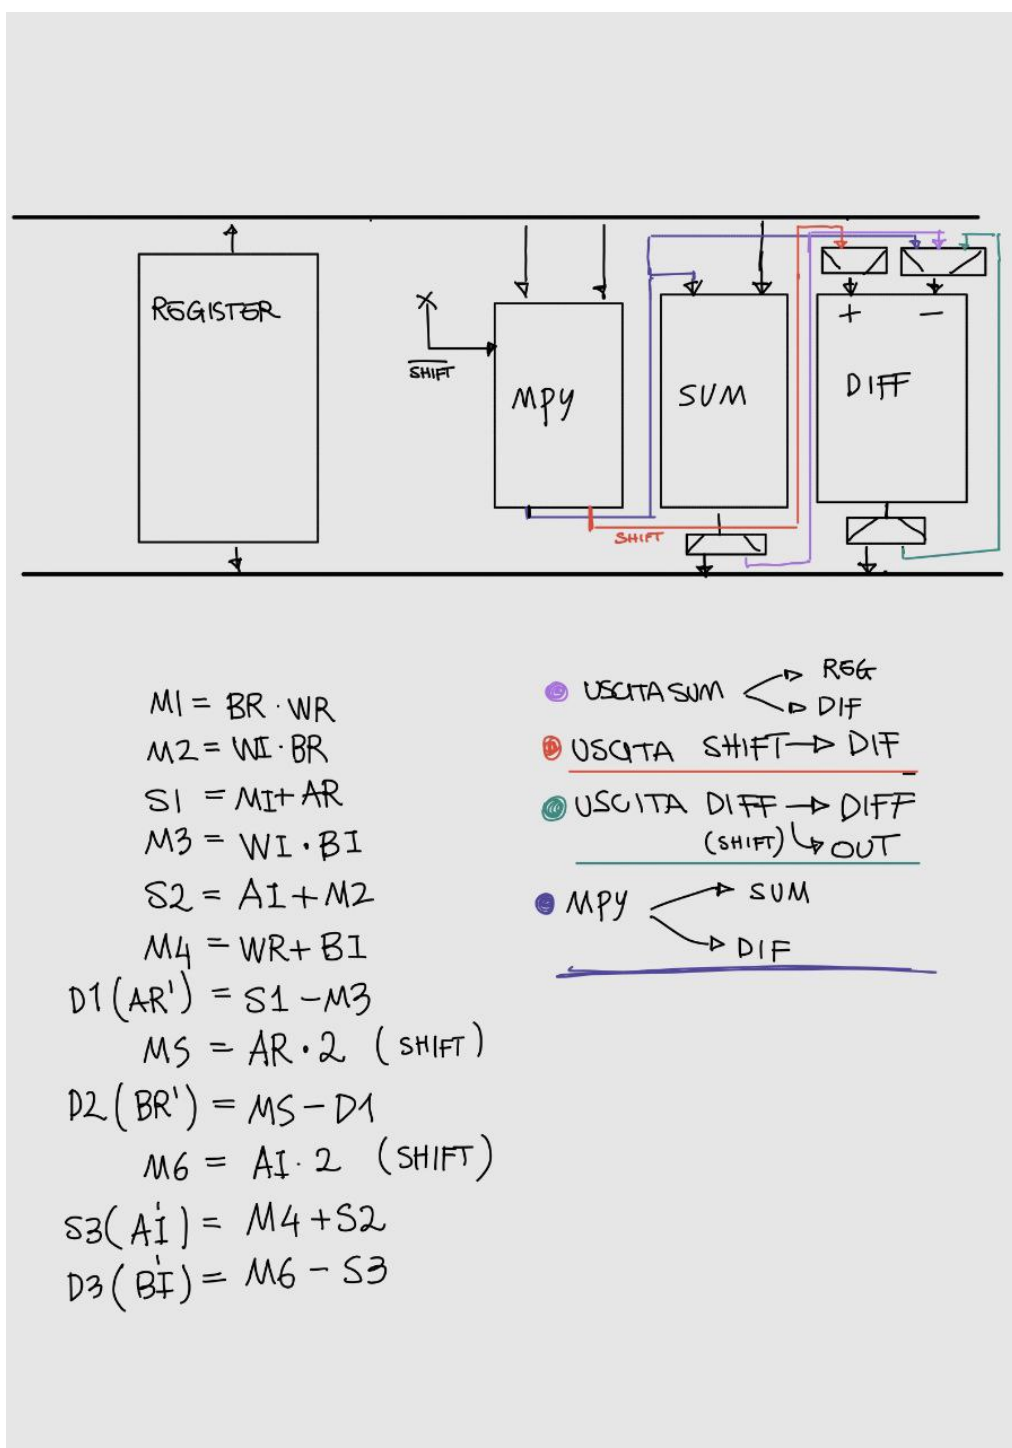 REGISTER
X
SHIFT
MPY
SUM
+ −
DIFF
SHIFT
M1 = BR · WR
M2 = WI · BR
S1 = M1 + AR
M3 = WI · BI
S2 = AI + M2
M4 = WR + BI
D1 (AR') = S1 − M3
M5 = AR · 2 (SHIFT)
D2 (BR') = M5 − D1
M6 = AI · 2 (SHIFT)
S3 (AI') = M4 + S2
D3 (BI') = M6 − S3
USCITA SUM REG
DIF
USCITA SHIFT → DIF
USCITA DIFF → DIFF
(SHIFT) OUT
MPY SUM
DIF